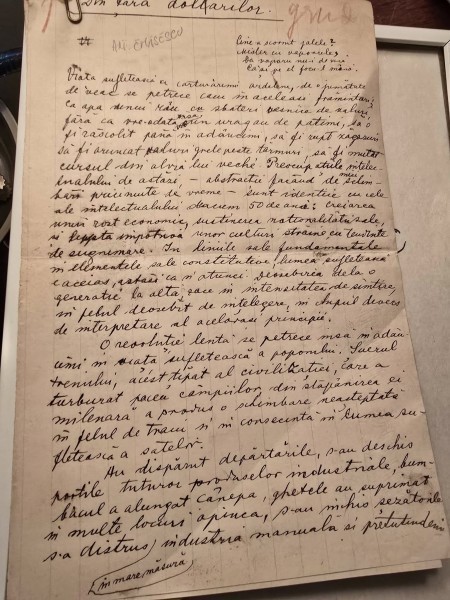 Din țara dolarilor.
grud
M. EMINESCU
Cine a scornit șalele?
Mister cu vapoarele,
Că vaporu merge de nu
Viața sufletească a cărturărimii ardelene, de o jumătate
de veac se petrece cam în aceleași frământări,
ca apa
fără ca vre-odată un uragan de patemi, să o
și răscolit până în adâncuri, să-și rupt zăgazuri
să-și aruncat valuri peste țarmuri, să-și mutat
cursul din albia lui veche. Preocupațiile intelec-
tualului de astăzi – abstracție făcând de schim-
bări pricinuite de vreme – sunt identice cu cele
ale intelectualului de acum 50 de ani: crearea
unui rost economic, susținerea naționalității sale,
și luptă împotriva unor culturi străine cu tendințe
de sugrumare. În liniile sale fundamentale
în elementele sale constitutive, lumea sufletească
e aceeaș, astăzi ca și atunci. Deosebirea dela o
generație la alta, zace în intensitatea de simțire,
în felul deosebit de înțelegere, și în chipul
de interpretare al acelorași principii.
O revoluție lentă se petrece însă în adân-
cimi în viața sufletească a poporului. Fuerul
trenului, acest țipăt al civilizației, care a
turburat pacea câmpiilor din stăpânirea ei
milenară a produs o schimbare neașteptată
în felul de traiu și în consecință în lumea su-
fletească a satelor.
Au dispărut depărtările, s-au deschis
porțile tuturor produselor industriale, bum-
bacul a alungat cânepa, ghetele au suprimat
în multe locuri opinca, s-au închis șezătorile
s-a distrus industria manuală și pretutindeni
în mare măsură